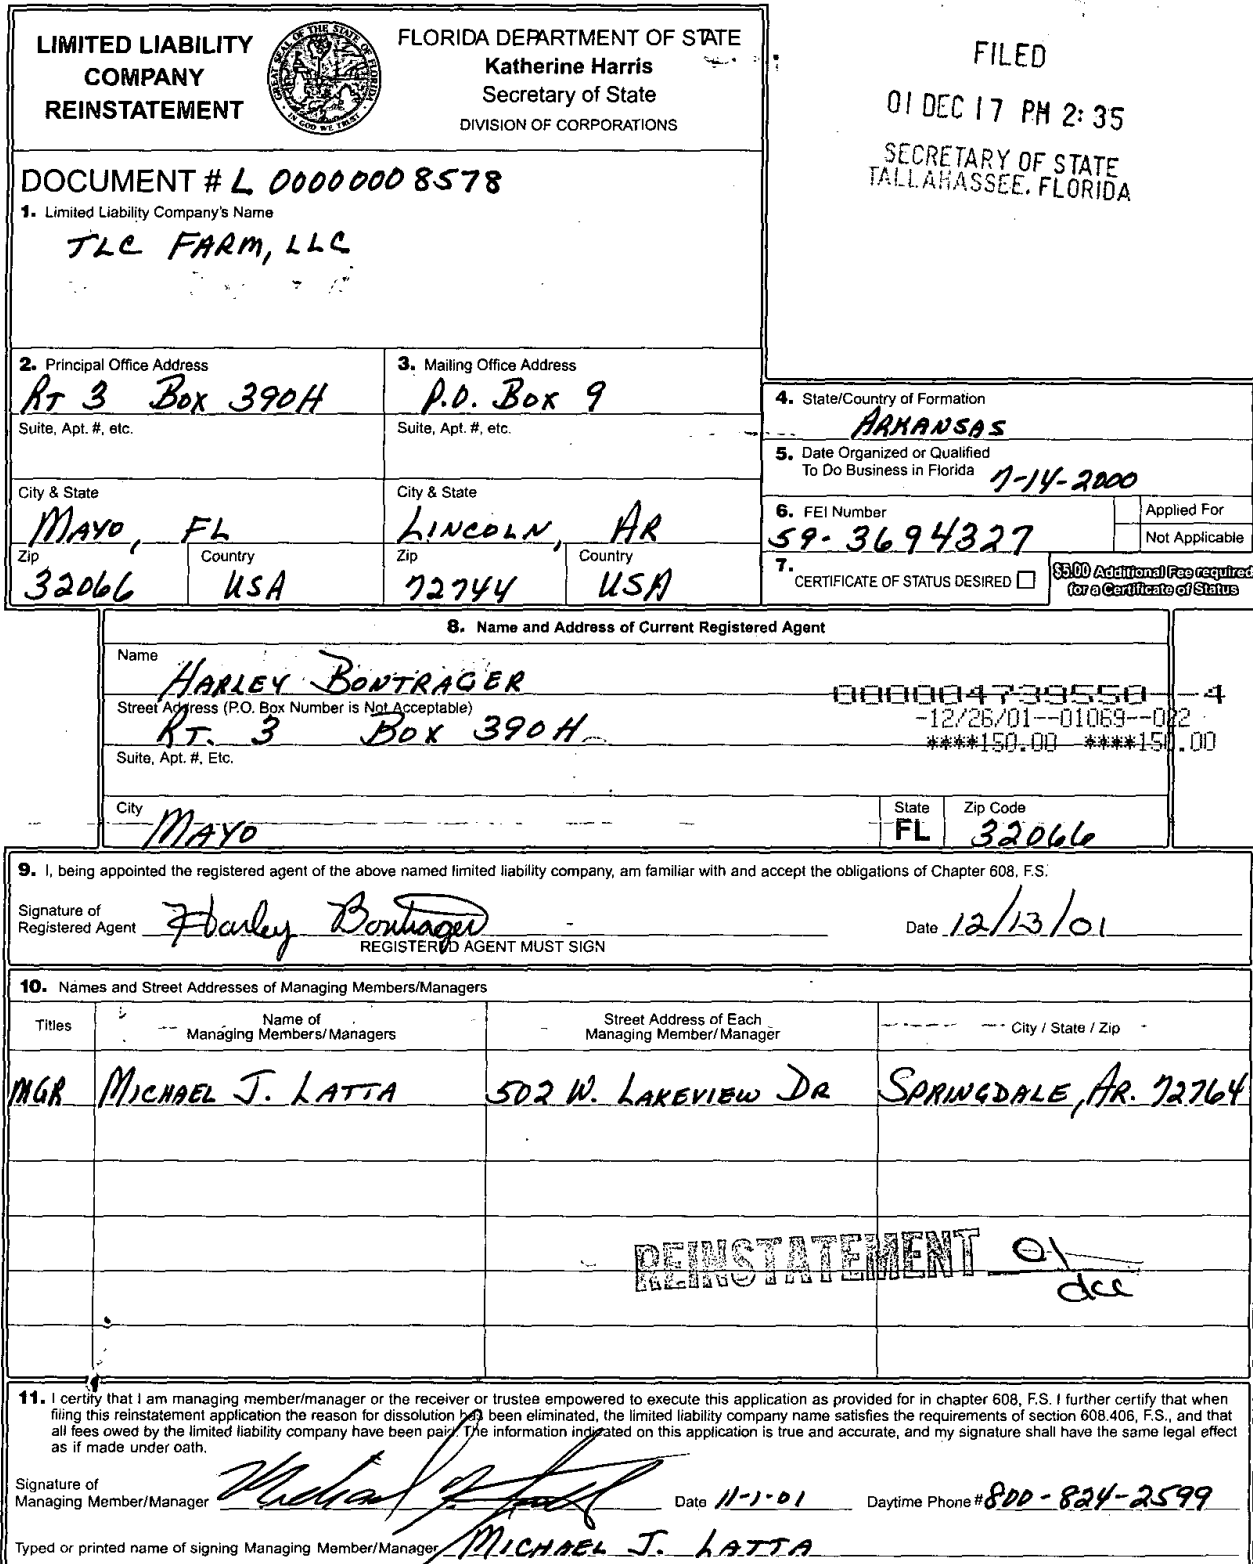 LIMITED LIABILITY
COMPANY
REINSTATEMENT
GREAT SEAL OF THE STATE OF FLORIDA
IN GOD WE TRUST
FLORIDA DEPARTMENT OF STATE
Katherine Harris
Secretary of State
DIVISION OF CORPORATIONS
FILED
01 DEC 17 PM 2:35
SECRETARY OF STATE
TALLAHASSEE, FLORIDA
DOCUMENT # L 00000008578
1. Limited Liability Company's Name
TLC FARM, LLC
2. Principal Office Address
RT 3 BOX 390H
Suite, Apt. #, etc.
City & State
MAYO, FL
Zip
32066
Country
USA
3. Mailing Office Address
P.O. BOX 9
Suite, Apt. #, etc.
City & State
LINCOLN, AR
Zip
72744
Country
USA
4. State/Country of Formation
ARKANSAS
5. Date Organized or Qualified
To Do Business in Florida 7-14-2000
6. FEI Number
59-3694327
Applied For
Not Applicable
7. CERTIFICATE OF STATUS DESIRED
$5.00 Additional Fee required
for a Certificate of Status
8. Name and Address of Current Registered Agent
Name
HARLEY BONTRAGER
Street Address (P.O. Box Number is Not Acceptable)
RT. 3 BOX 390H
Suite, Apt. #, Etc.
000004739550--4
-12/26/01--01069--022
****150.00 ****150.00
City
MAYO
State
FL
Zip Code
32066
9. I, being appointed the registered agent of the above named limited liability company, am familiar with and accept the obligations of Chapter 608, F.S.
Signature of
Registered Agent Harley Bontrager
REGISTERED AGENT MUST SIGN
Date 12/13/01
10. Names and Street Addresses of Managing Members/Managers
Titles
Name of
Managing Members/Managers
Street Address of Each
Managing Member/Manager
City / State / Zip
MGR MICHAEL J. LATTA 502 W. LAKEVIEW DR SPRINGDALE, AR. 72764
REINSTATEMENT 01
dcc
11. I certify that I am managing member/manager or the receiver or trustee empowered to execute this application as provided for in chapter 608, F.S. I further certify that when
filing this reinstatement application the reason for dissolution has been eliminated, the limited liability company name satisfies the requirements of section 608.406, F.S., and that
all fees owed by the limited liability company have been paid. The information indicated on this application is true and accurate, and my signature shall have the same legal effect
as if made under oath.
Signature of
Managing Member/Manager Michael J. Latta Date 11-1-01 Daytime Phone # 800-824-2599
Typed or printed name of signing Managing Member/Manager MICHAEL J. LATTA